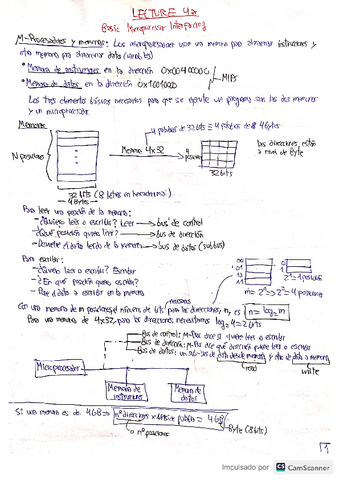 LECTURE 4a
Basic Microprocessor Interfacing
M-Procesadores y memorias: Los microprocesadores usan una memoria para almacenar instrucciones y
otra memoria para almacenar datos (variables)
• Memoria de instrucciones en la dirección 0x00400000
• Memoria de datos en la dirección 0x10010000
MIPS
Los tres elementos básicos necesarios para que se ejecute un programa son las dos memorias
y un microprocesador
Memoria:
4 palabras de 32 bits = 4 palabras de 4 bytes
N posiciones
Memoria 4x32
4 posiciones
32 bits
Las direcciones están
a nivel de Byte
32 bits (8 letras en hexadecimal)
4 Bytes
Para leer una posición de la memoria:
- ¿Quiero leer o escribir? Leer → bus de control
- ¿Qué posición quiero leer? → bus de dirección
- Devuelve el dato leído de la memoria → bus de datos (subbus)
Para escribir:
- ¿Quiero leer o escribir? Escribir
- ¿En qué posición quiero escribir?
- Pone el dato a escribir en la memoria
00
01
10
11
0
1
m = 2² => 2² = 4 posiciones
2¹ = 2 posiciones
necesarios
Con una memoria de m posiciones el número de bits para las direcciones, n, es n = log₂ m
Para una memoria de 4x32, para las direcciones necesitamos log₂ 4 = 2 bits
Bus de control: M-Proc dice si quiere leer o escribir
Bus de dirección: M-Proc dice qué dirección quiere leer o escribir
Bus de datos: un sub-bus de datos desde memoria y otro de datos a memoria
read
write
Microprocesador
Memoria de
instrucciones
Memoria de
datos
Si una memoria es de 4GB => nº direcciones x bits de palabra = 4GB
nº posiciones
Byte (8 bits)
1
Impulsado por CS CamScanner